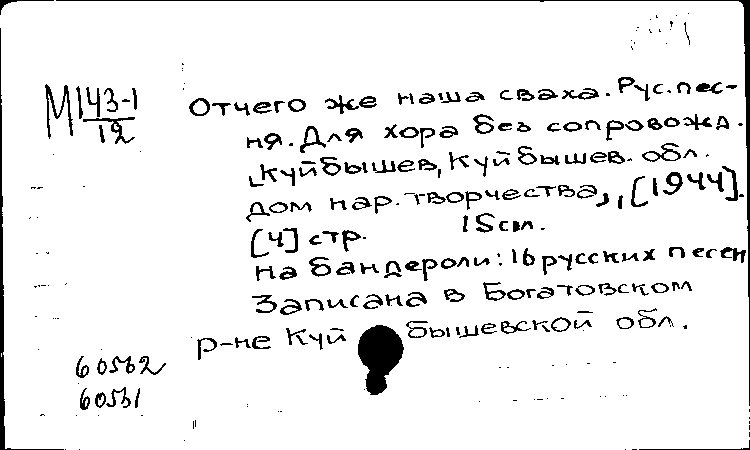 М143-1
12
Отчего же наша сваха. Рус. пес-
ня. Для хора без сопровожд.
Куйбышев, Куйбышев. обл.
дом нар. творчества, [1944].
[4] стр. 15 см.
На бандероли: 16 русских песен
Записана в Богатовском
р-не Куйбышевской обл.
60562
60561